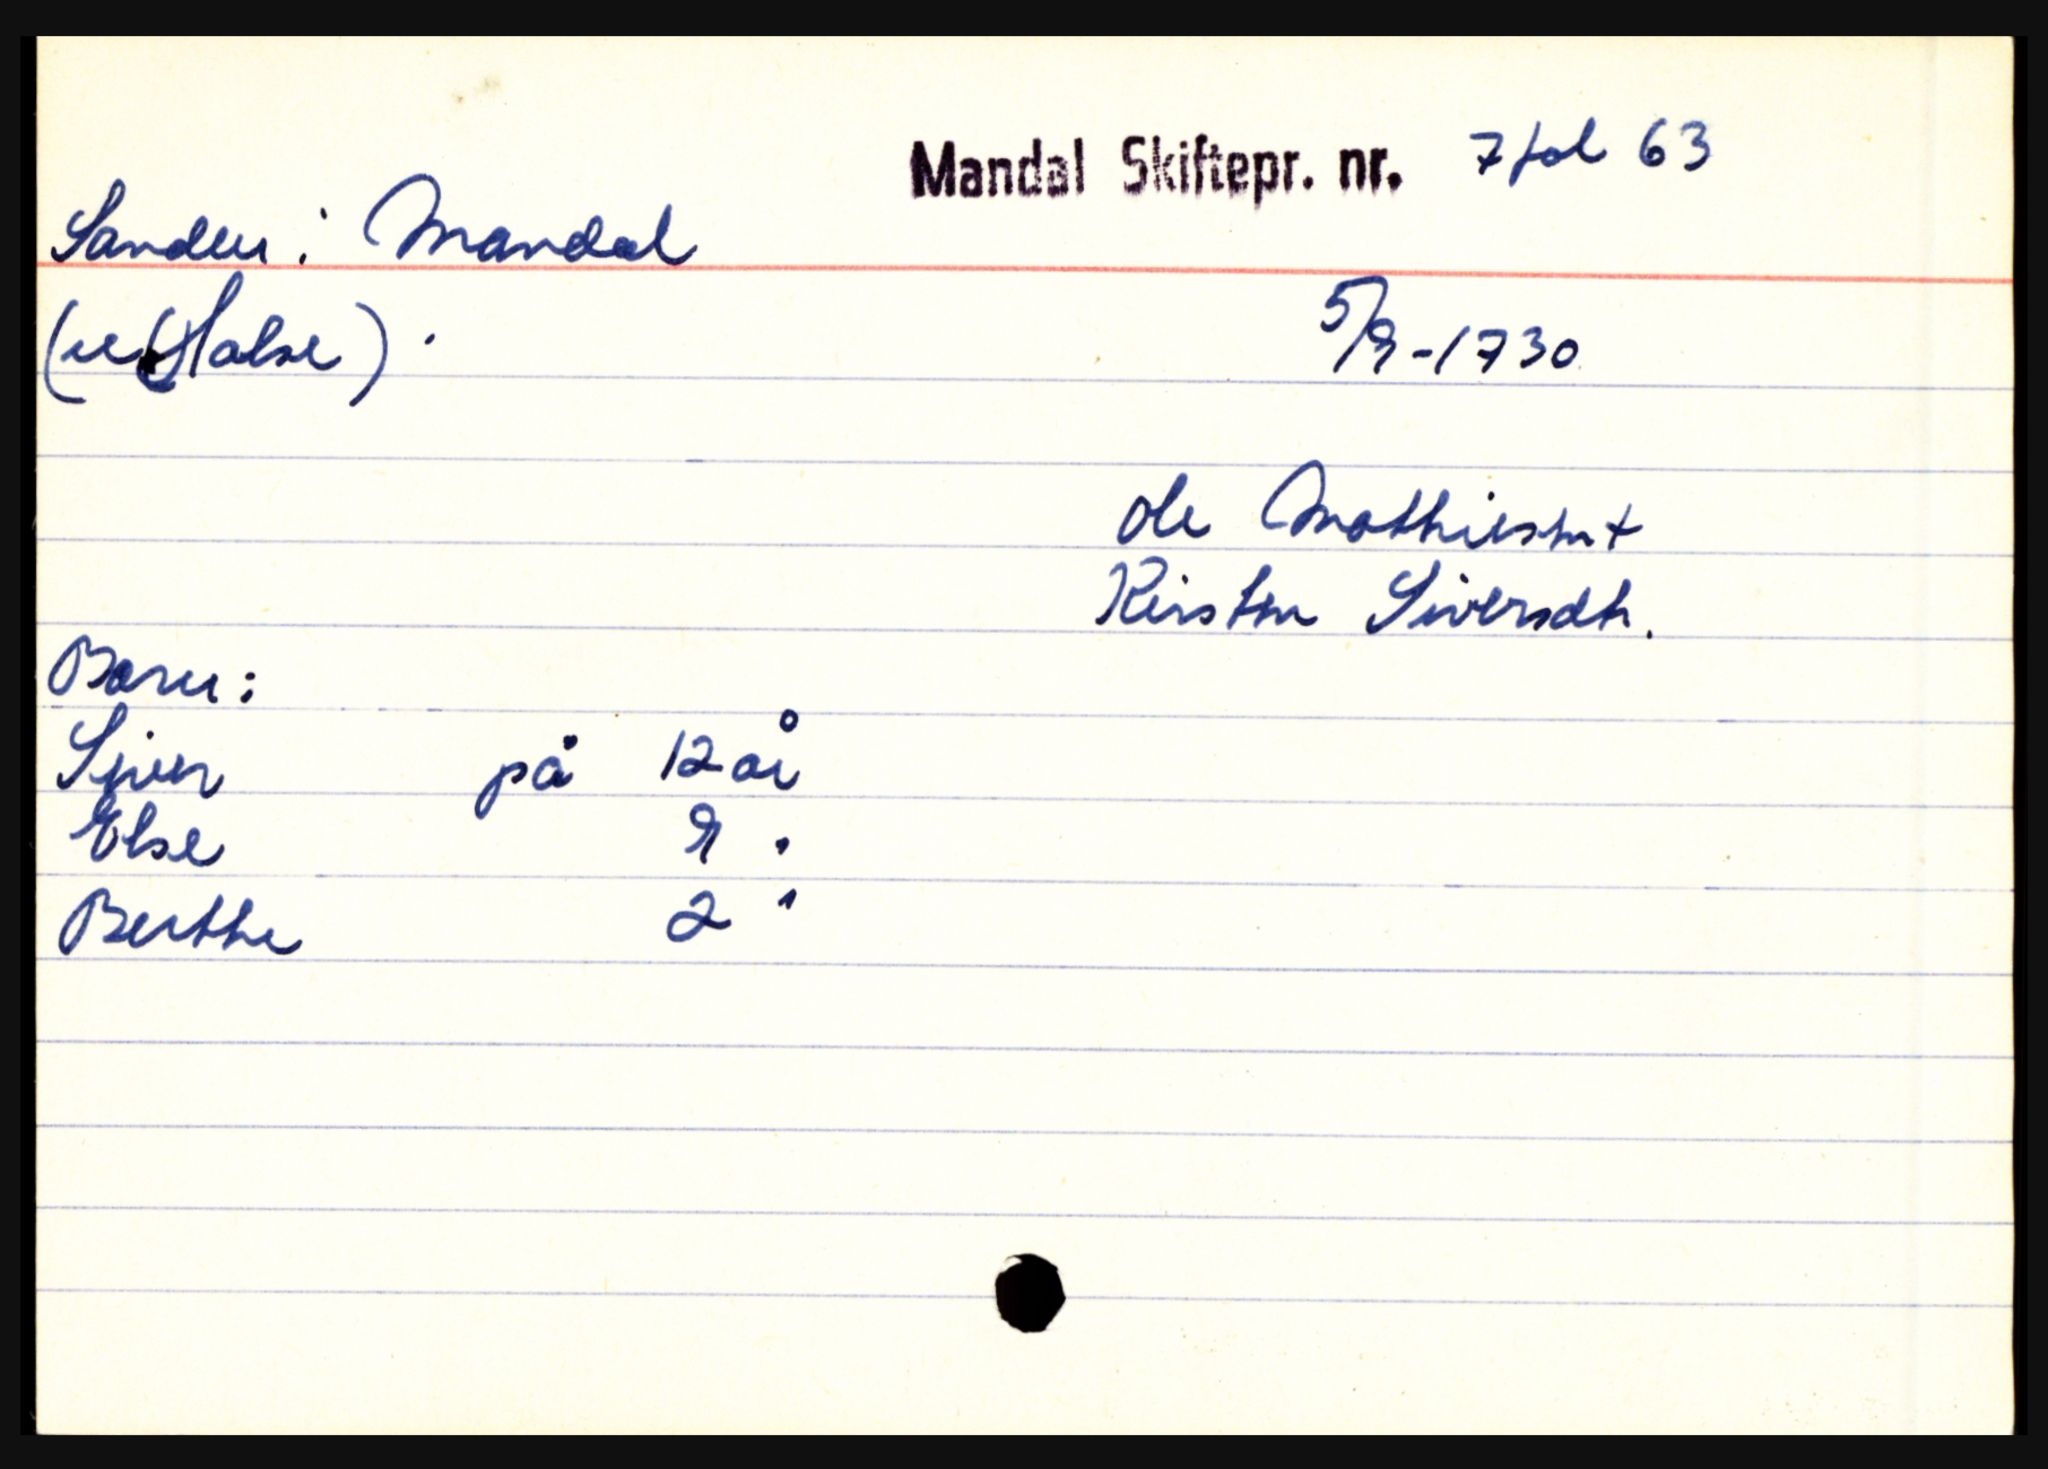 Mandal Skiftepr. nr. 7 fol 63
Sanden i Mandal
(Halse).
5/9-1730
Ole Mathiesen +
Kirsten Siversdtr.
Barn:
Sjver på 12 år
Else 9 "
Berthe 2 "